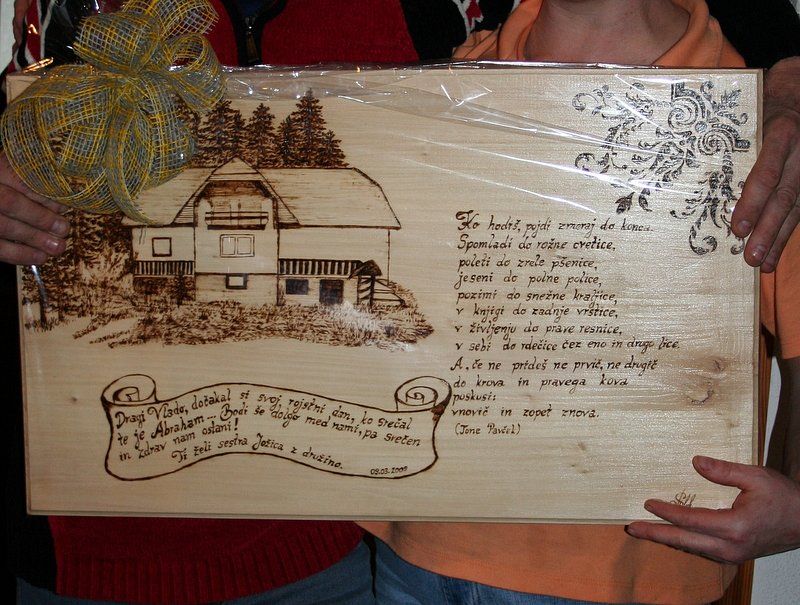 Ko hodiš, pojdi zmeraj do konca.
Spomladi do rožne cvetice,
poleti do zrele pšenice,
jeseni do polne police,
pozimi do snežne kraljice,
v knjigi do zadnje vrstice,
v življenju do prave resnice,
v sebi do rdečice čez eno in drugo lice.
A, če ne prideš ne prvič, ne drugič
do krova in pravega kova
poskusi:
vnovič in zopet znova.
(Tone Pavček)
Dragi Vlado, dočakal si svoj rojstni dan, ko srečal
te je Abraham... Bodi še dolgo med nami, pa srečen
in zdrav nam ostani!
Ti želi sestra Jožica z družino.
09.03.2009